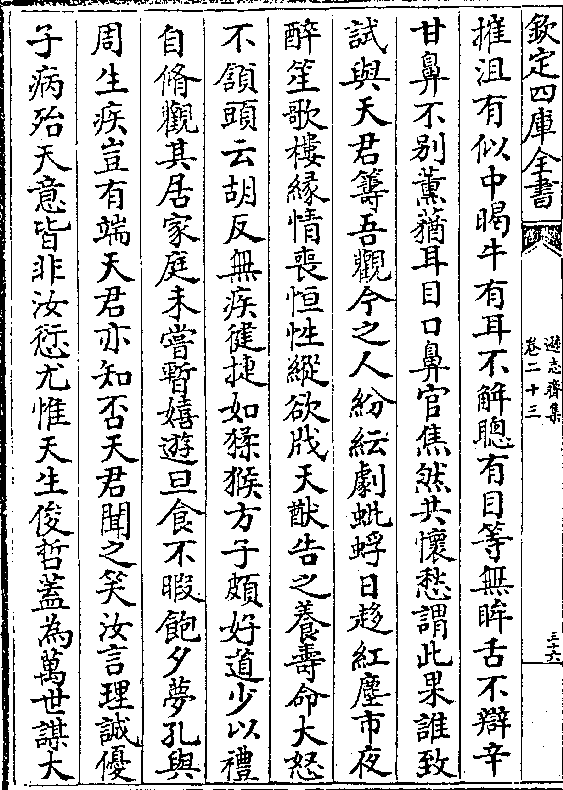 欽定四庫全書
遜志齋集
卷二十三
三六
摧沮有似中暍牛有耳不解聰有目等無眸舌不辯辛
甘鼻不别薫蕕耳目口鼻官焦然共懷愁謂此果誰致
試與天君籌吾觀今之人紛紜劇蚍蜉日趍紅塵市夜
醉笙歌樓縁情喪恒性縱欲戕天猷告之養壽命大怒
不頷頭云胡反無疾徤捷如猱猴方子頗好道少以禮
自脩觀其居家庭未嘗暫嬉遊旦食不暇飽夕夢孔與
周生疾豈有端天君亦知否天君聞之笑汝言理誠優
子病殆天意皆非汝愆尤惟天生俊哲葢為萬世謀大